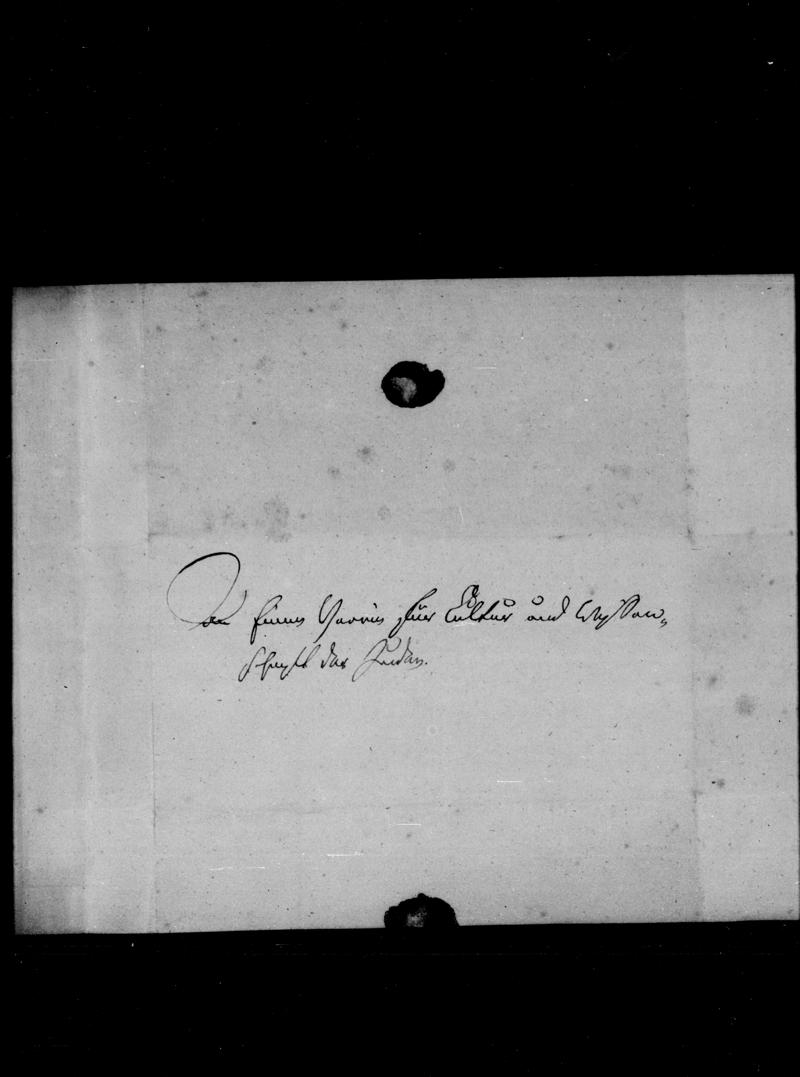 An Einen Verein für Cultur und Wissen-
schaft der Juden.